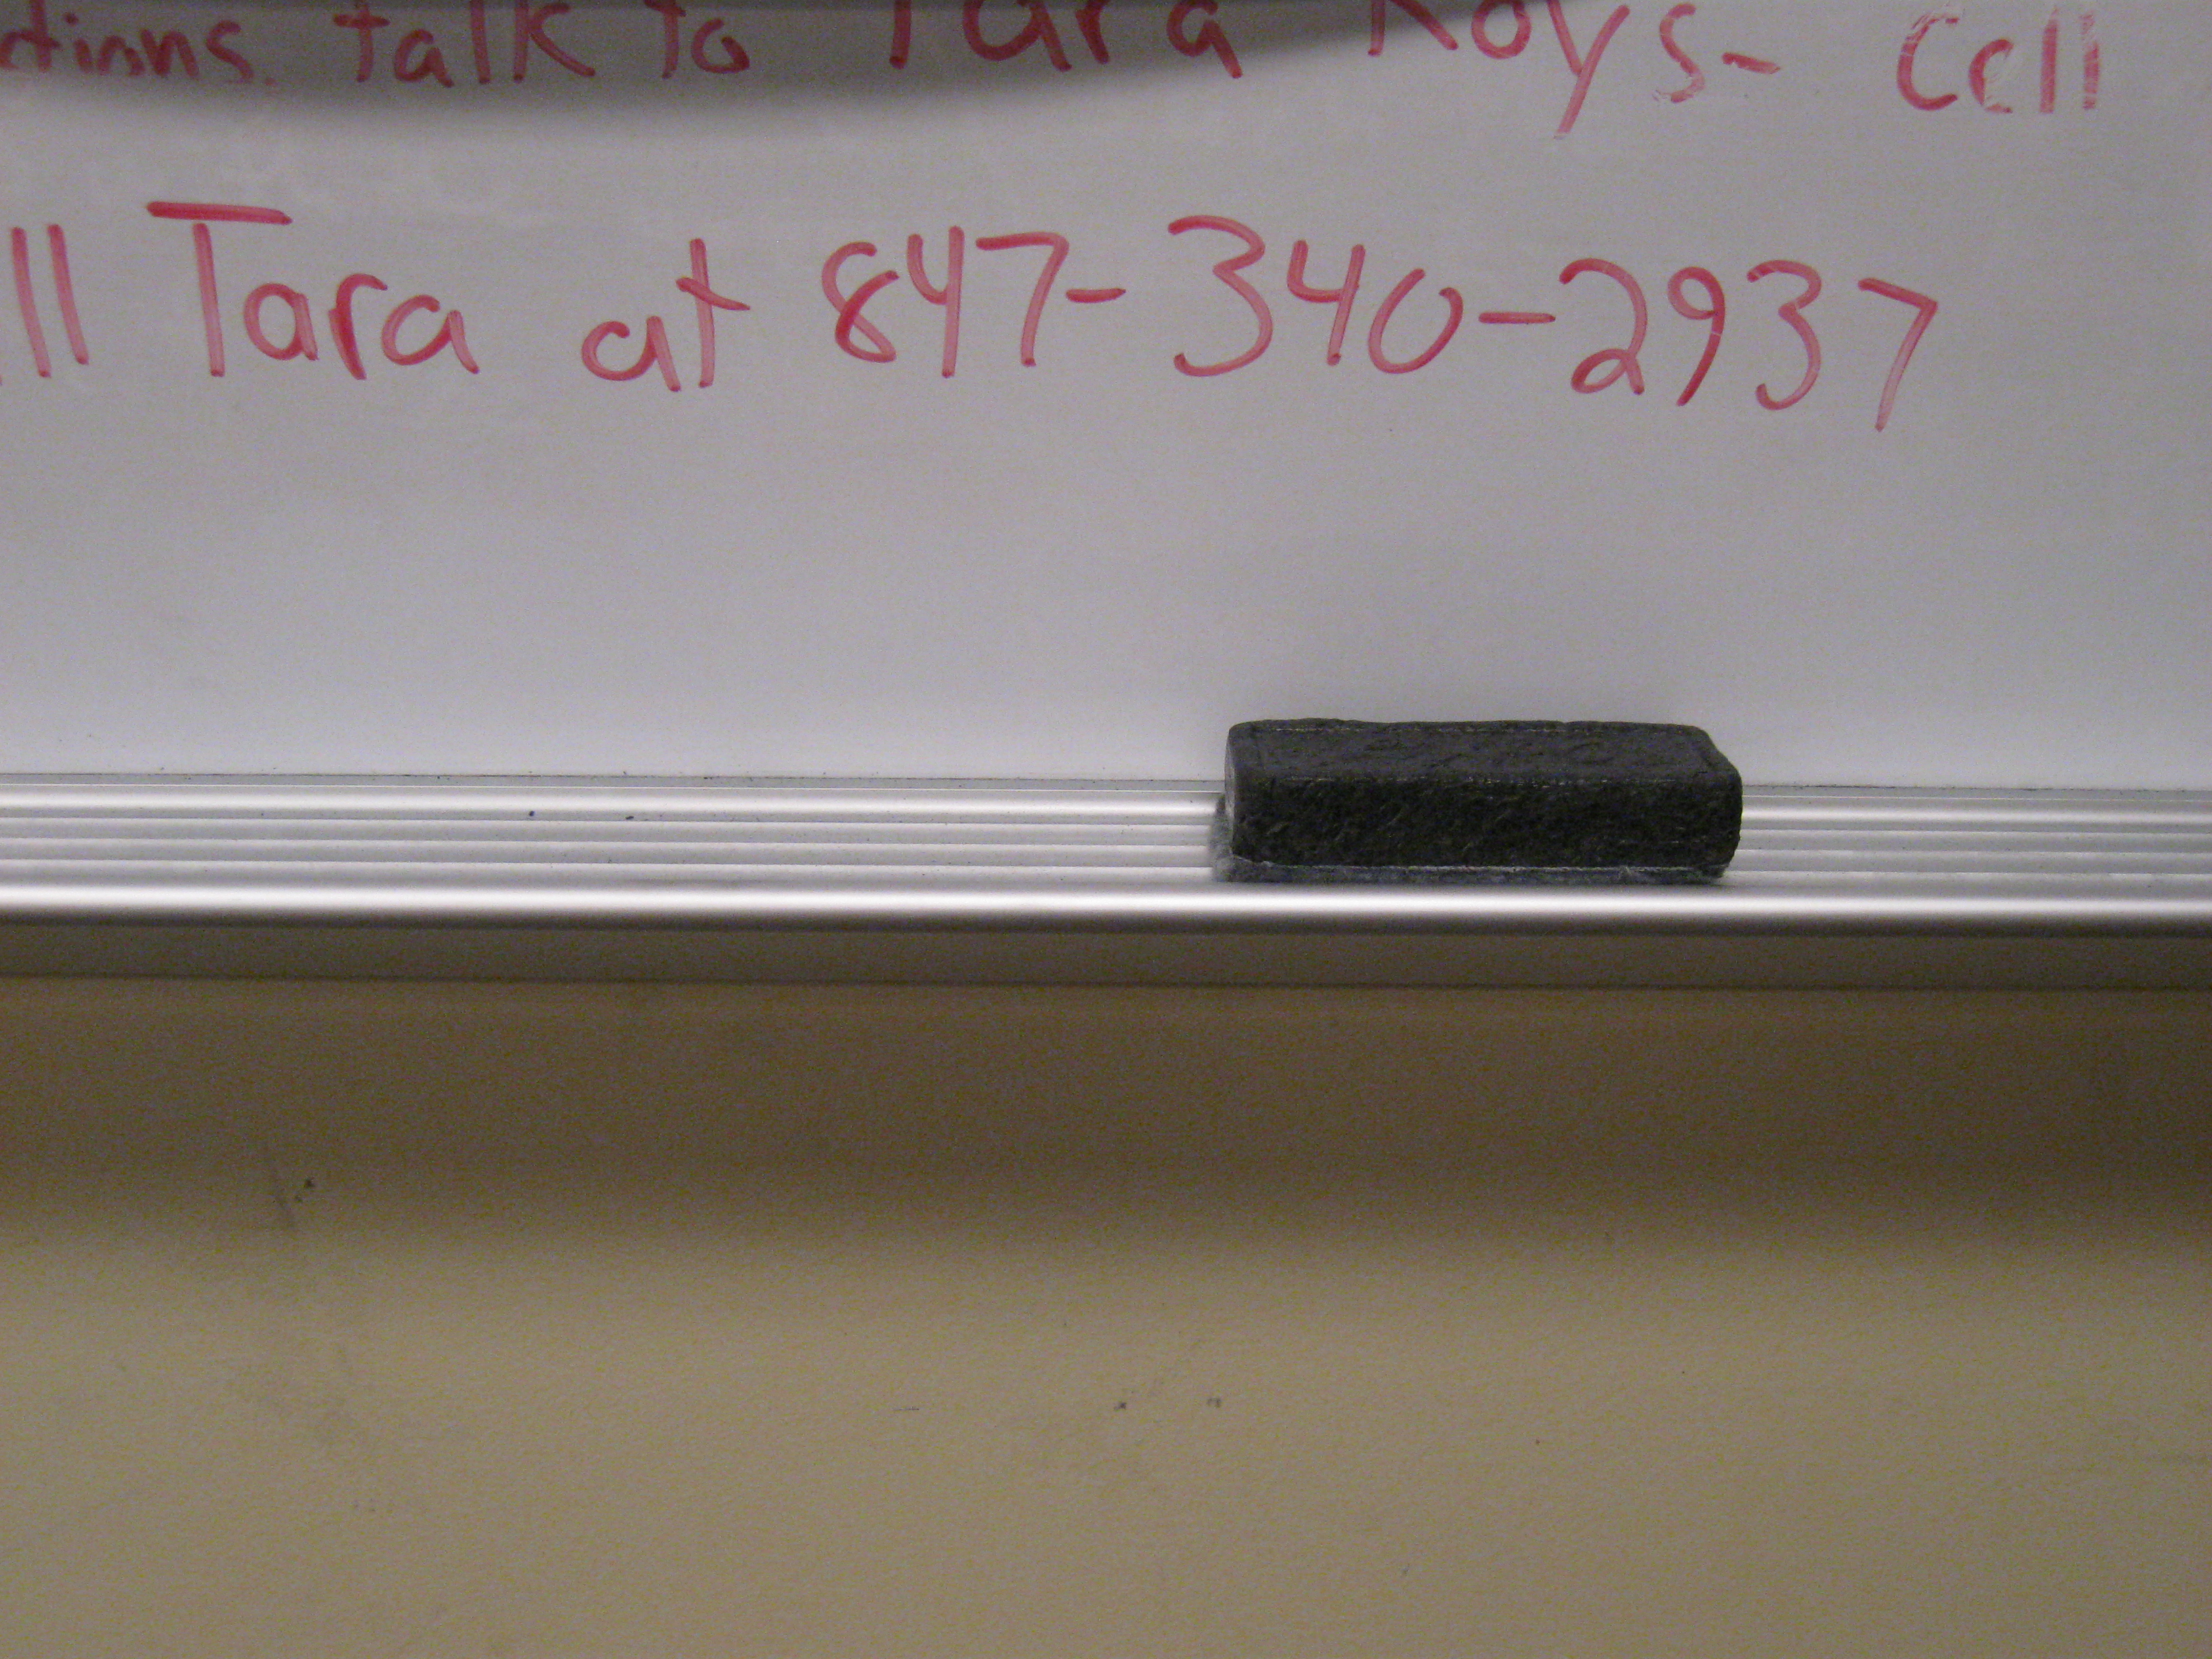 talk to Tara Roys- Cell
Tara at 847-340-2937